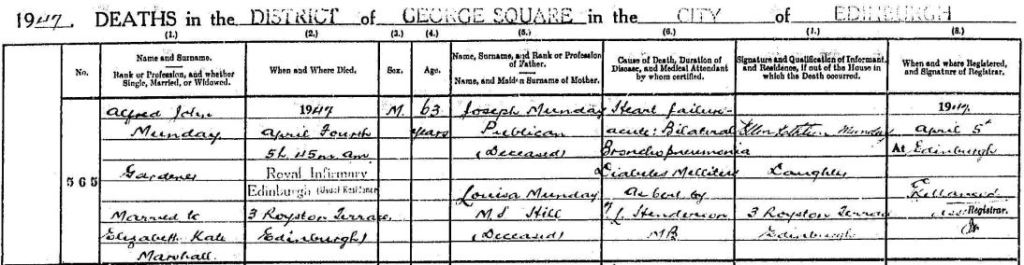 1947. DEATHS in the DISTRICT of GEORGE SQUARE in the CITY of EDINBURGH
(1.) (2.) (3.) (4.) (5.) (6.) (7.) (8.)
No.
Name and Surname.
Rank or Profession, and whether Single, Married, or Widowed.
When and Where Died.
Sex.
Age.
Name, Surname, and Rank or Profession of Father.
Name, and Maiden Surname of Mother.
Cause of Death, Duration of Disease, and Medical Attendant by whom certified.
Signature and Qualification of Informant, and Residence, if out of the House in which the Death occurred.
When and where Registered, and Signature of Registrar.
565
Alfred John
Munday
Gardener
Married to
Elizabeth Kate
Marshall
1947
April Fourth
5h. 45m. am.
Royal Infirmary
Edinburgh (Usual Residence
3 Royston Terrace,
Edinburgh)
M
63
years
Joseph Munday
Publican
(Deceased)
Louisa Munday
M.S. Hill
(Deceased)
Heart failure-
acute: Bilateral
Bronchopneumonia
Diabetes Mellitus
as cert by
Henderson
MB
Munday
Daughter
3 Royston Terrace
Edinburgh
1947.
April 5th
At Edinburgh
Registrar.